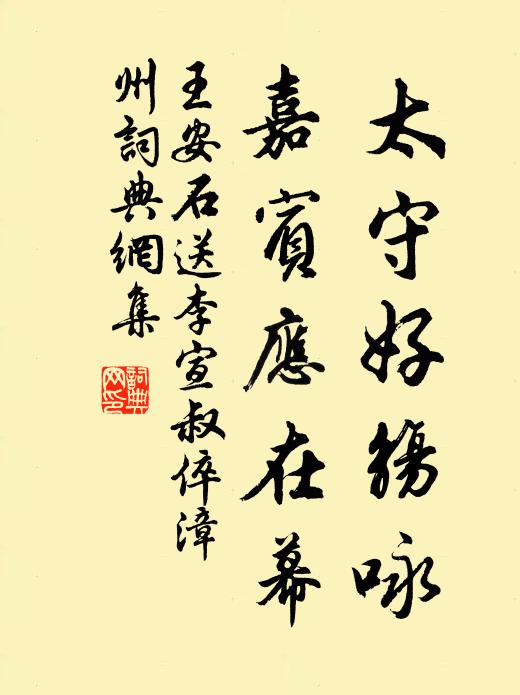 太守好觴咏
嘉賓應在幕
王安石送李宣叔倅漳
州詞典網集
詞典
网印